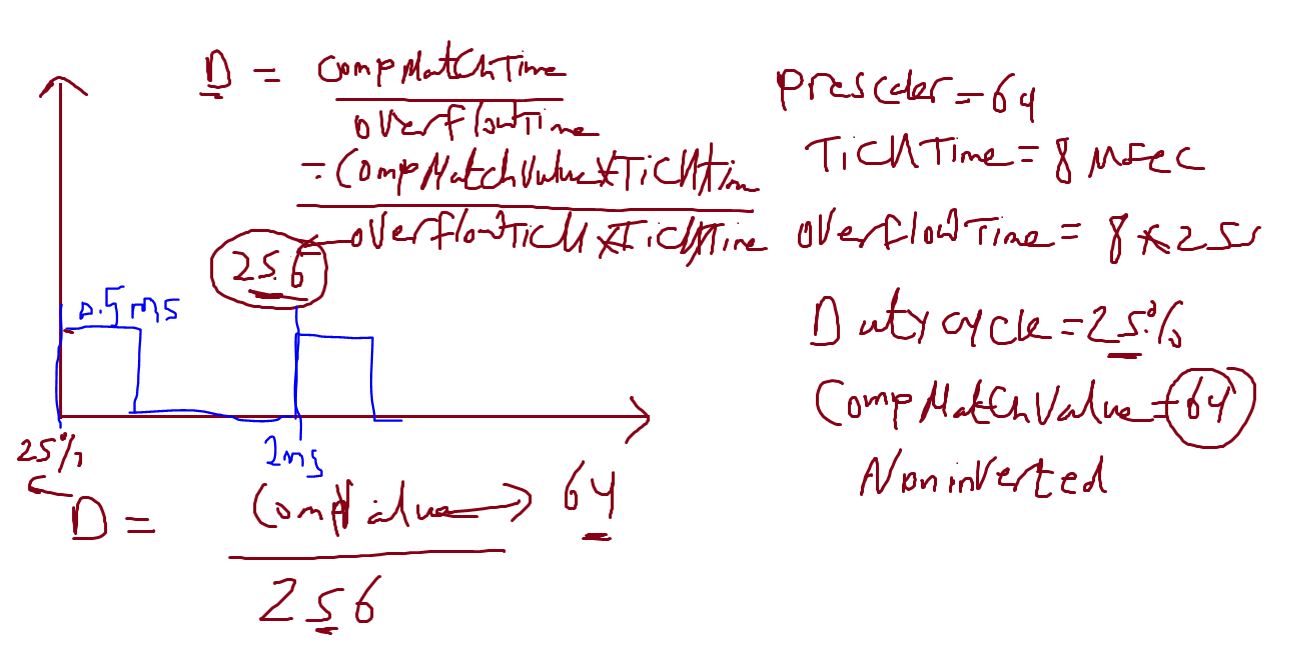 D = CompMatchTime
overflowTime
= CompMatchValue*TickTime
overflowTick*TickTime
256
0.5 ms
2ms
25%
D = CompValue → 64
256
Prescaler=64
TickTime=8 Msec
overflowTime=8*25
Dutycycle=25%
CompMatchValue=64
Noninverted